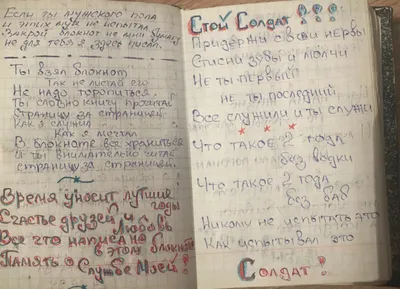 Если ты мужского пола
и этих мук не испытал
Закрой блокнот не мни бумагу
не для тебя я здесь писал.
Ты взял блокнот
Так не листай его
Не надо торопиться.
Ты словно книгу прочитай
Страницу за страницей.
Как я служил
Как я мечтал
В блокноте все храниться
И ты внимательно читай
страницу за страницей.
Время уносит лучшие
годы
Счастье друзей и
Любовь
Все что написано
в этом блокноте
Память о
Службе Моей!
Стой Солдат!!!
Придержи свои нервы
Стисни зубы и молчи
Не ты первый
не ты последний
Все служили и ты служи
Что такое 2 года
без водки
Что такое 2 года
без баб
Никому не испытать это
Как испытывал это
Солдат!